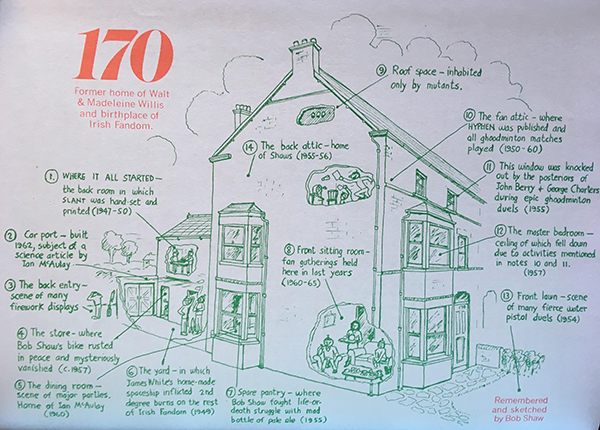 170
Former home of Walt
& Madeleine Willis
and birthplace of
Irish Fandom.
1. WHERE IT ALL STARTED –
the back room in which
SLANT was hand-set and
printed (1947-50)
2 Car port – built
1962, subject of a
science article by
Ian McAulay
3 The back entry –
scene of many
firework displays
4 The store – where
Bob Shaw's bike rusted
in peace and mysteriously
vanished (c.1957)
5 The dining room –
scene of major parties.
Home of Ian McAulay
(1960)
6 The yard – in which
James White's home-made
spaceship inflicted 2nd
degree burns on the rest
of Irish Fandom (1949)
7 Spare pantry – where
Bob Shaw fought life-or-
death struggle with mad
bottle of pale ale (1955)
8 Front sitting room –
fan gatherings held
here in last years
(1960-65)
9 Roof space – inhabited
only by mutants.
10 The fan attic – where
HYPHEN was published and
all ghoodminton matches
played (1950-60)
11 This window was knocked
out by the posteriors of
John Berry & George Charters
during epic ghoodminton
duels (1955)
12 The master bedroom –
ceiling of which fell down
due to activities mentioned
in notes 10 and 11.
(1957)
13 Front lawn – scene
of many fierce water
pistol duels (1954)
14 The back attic – home
of Shaws (1955-56)
Remembered
and sketched
by Bob Shaw